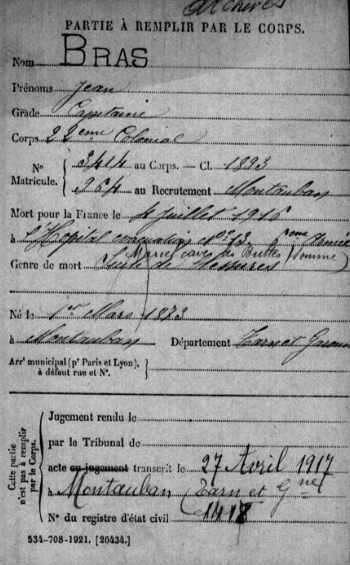 Archives
PARTIE À REMPLIR PAR LE CORPS.
Nom BRAS
Prénoms Jean
Grade Capitaine
Corps 22eme Colonial
N° Matricule. { 3414 au Corps. — Cl. 1893
964 au Recrutement Montauban
Mort pour la France le 4 juillet 1916
à l'Hôpital évacuation n° 13 eme Armée
Marie caves les Buttes (Somme)
Genre de mort Suite de blessures
Né le 1er Mars 1873
à Montauban Département Tarn et Garonne
Arrt municipal (pr Paris et Lyon), à défaut rue et N°.
Cette partie n'est pas à remplir par le Corps.
Jugement rendu le
par le Tribunal de
acte ou jugement transcrit le 27 Avril 1917
à Montauban Tarn et Gne
N° du registre d'état civil 1418
534-708-1921. [26434.]